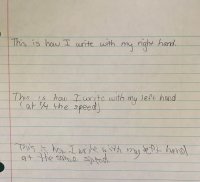 This is how I write with my right hand.
This is how I write with my left hand
(at 1/4 the speed)
This is how I write with my left hand
at the same speed